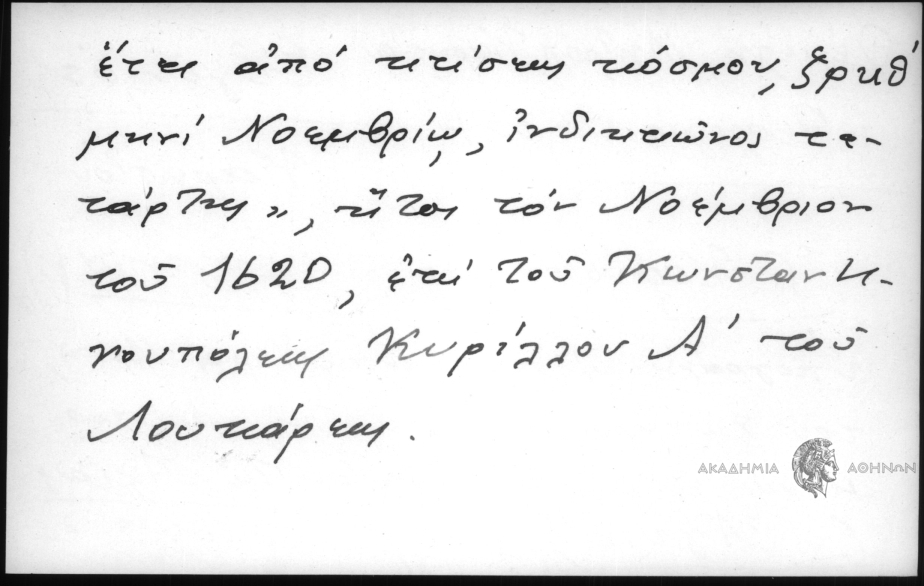 ἔτει ἀπό κτίσεως κόσμου, ζρκθ΄
μηνί Νοεμβρίῳ, ἰνδικτιῶνος τε-
τάρτης», ἤτοι τόν Νοέμβριον
τοῦ 1620, ἐπί τοῦ Κωνσταντι-
νουπόλεως Κυρίλλου Α΄ τοῦ
Λουκάρεως.
ΑΚΑΔΗΜΙΑ ΑΘΗΝΩΝ